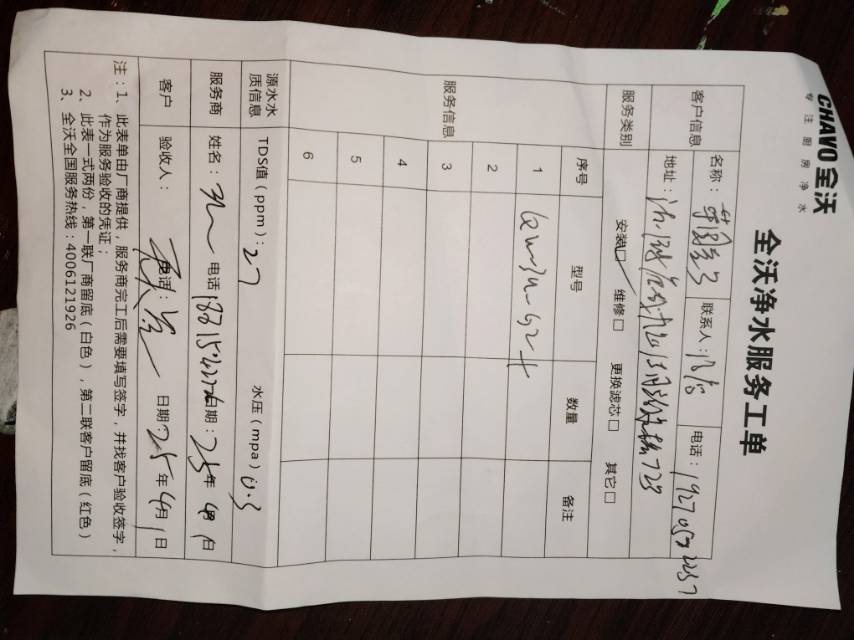 CHAVO 全沃
专注厨房净水
全沃净水服务工单
客户信息
名称： 联系人： 电话：
地址：
服务类别
安装☑ 维修□ 更换滤芯□ 其它□
服务信息
序号 型号 数量 备注
1
2
3
4
5
6
源水水质信息
TDS值（ppm）：27 水压（mpa）0.3
服务商
姓名： 电话 日期：25年4月1日
客户
验收人： 电话： 日期：25年4月1日
注：1、此表单由厂商提供，服务商完工后需要填写签字，并找客户验收签字，
作为服务验收的凭证；
2、此表一式两份，第一联厂商留底（白色），第二联客户留底（红色）
3、全沃全国服务热线：4006121926